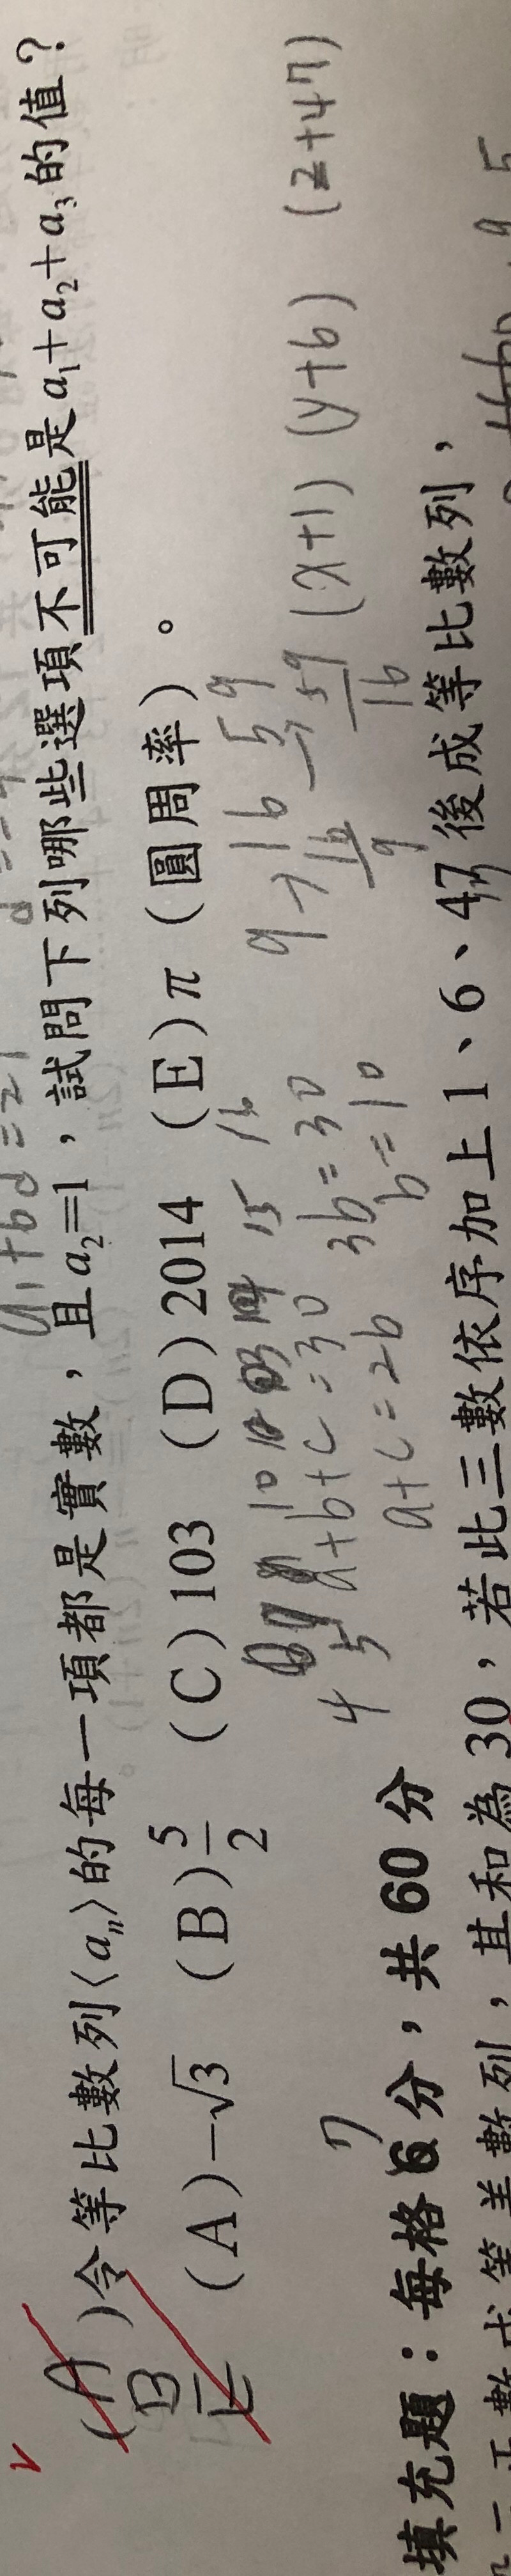 a₁+6d=21
(A
B
E
)令等比數列⟨aₙ⟩的每一項都是實數，且a₂=1，試問下列哪些選項不可能是a₁+a₂+a₃的值？
(A)−√3 (B)5/2 (C)103 (D)2014 (E)π（圓周率）。
a+b+c=30 3b=30
a+c=2b b=10
(x+1) (y+6) (z+47)
填充題：每格6分，共60分
數成等差數列，其和為30，若此三數依序加上1、6、47後成等比數列，